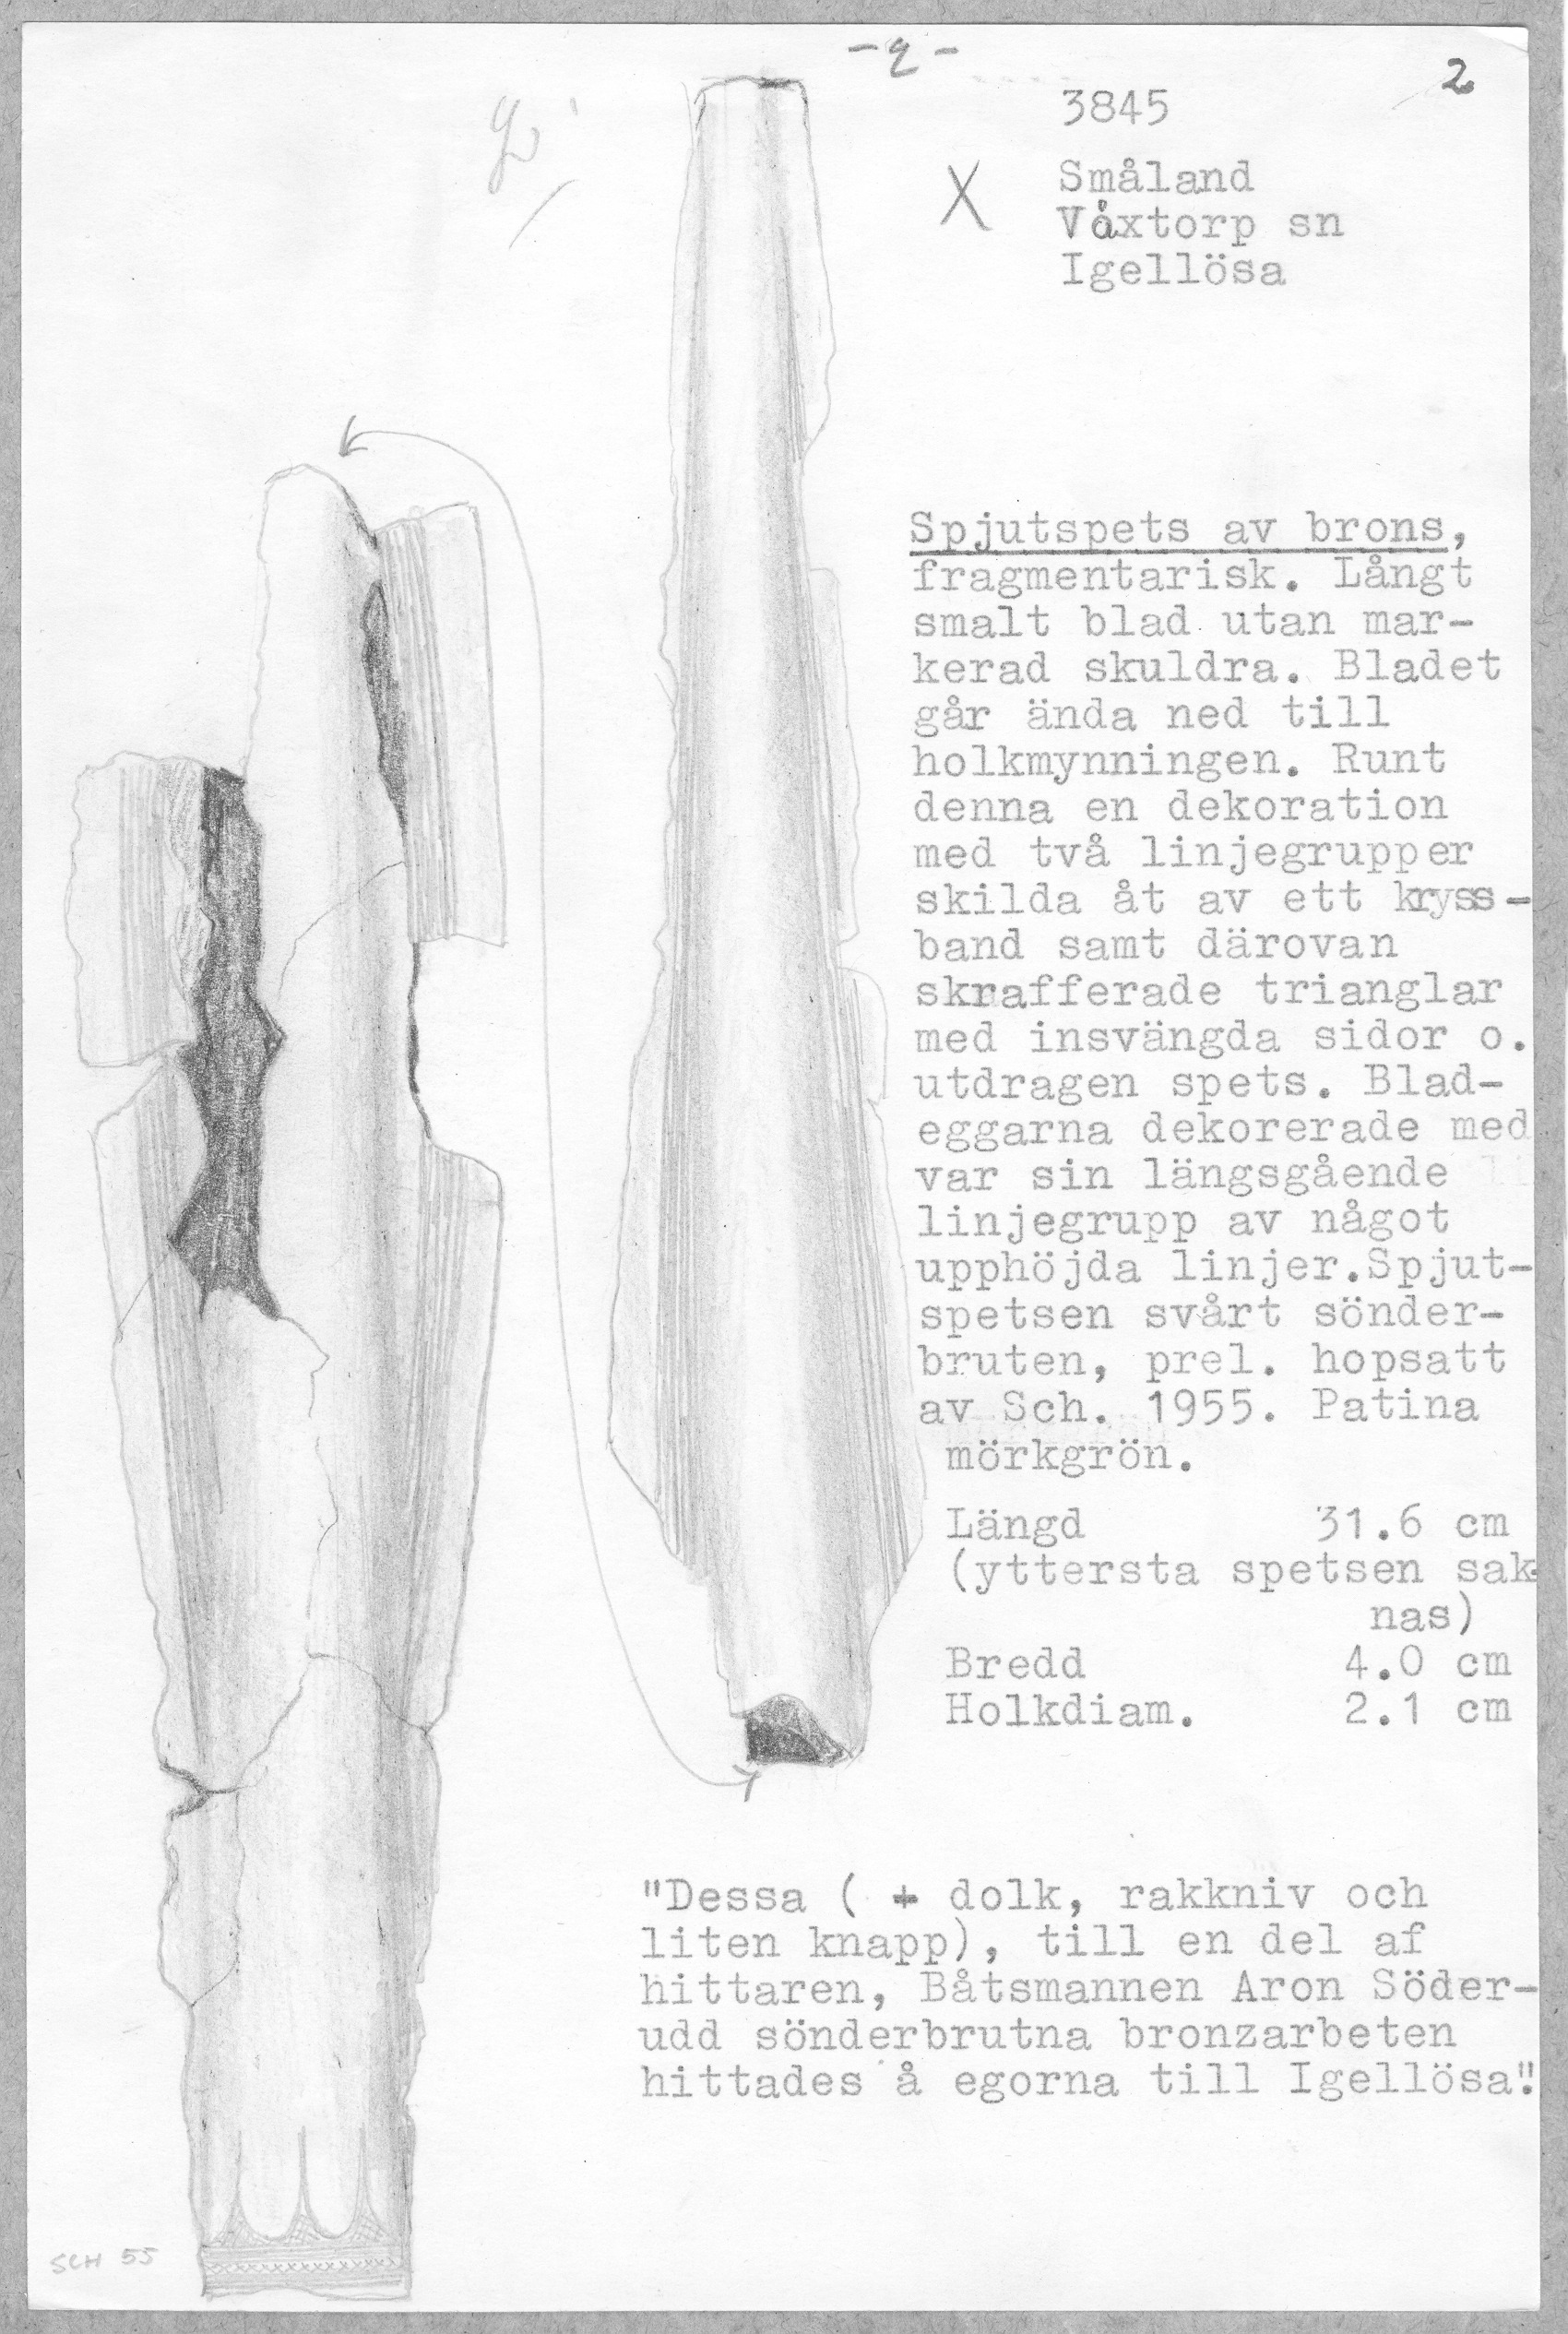 2
3845
X Småland
Våxtorp sn
Igellösa
Spjutspets av brons,
fragmentarisk. Långt
smalt blad utan mar-
kerad skuldra. Bladet
går ända ned till
holkmynningen. Runt
denna en dekoration
med två linjegrupper
skilda åt av ett kryss-
band samt därovan
skrafferade trianglar
med insvängda sidor o.
utdragen spets. Blad-
eggarna dekorerade med
var sin längsgående
linjegrupp av något
upphöjda linjer.Spjut-
spetsen svårt sönder-
bruten, prel. hopsatt
av Sch. 1955. Patina
mörkgrön.
Längd 31.6 cm
(yttersta spetsen sak-
nas)
Bredd 4.0 cm
Holkdiam. 2.1 cm
"Dessa ( + dolk, rakkniv och
liten knapp), till en del af
hittaren, Båtsmannen Aron Söder-
udd sönderbrutna bronzarbeten
hittades å egorna till Igellösa".
SCH 55